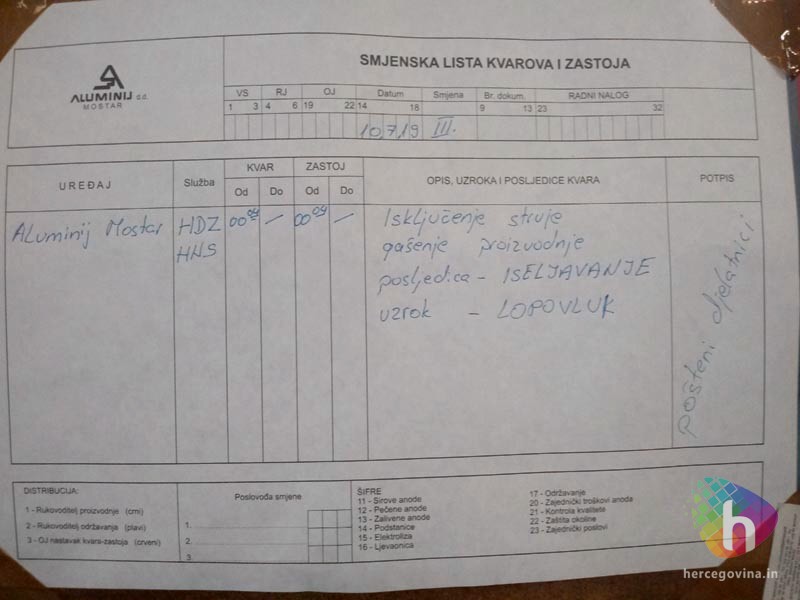 ALUMINIJ d.d.
MOSTAR
SMJENSKA LISTA KVAROVA I ZASTOJA
VS RJ OJ Datum Smjena Br. dokum. RADNI NALOG
1 3 4 6 19 22 14 18 9 13 23 32
10,7,19 III.
UREĐAJ Služba KVAR ZASTOJ OPIS, UZROKA I POSLJEDICE KVARA POTPIS
Od Do Od Do
Aluminij Mostar HDZ — — Isključenje struje
HNS gašenje proizvodnje
posljedica - ISELJAVANJE
uzrok - LOPOVLUK
pošteni djelatnici
DISTRIBUCIJA:
1 - Rukovoditelj proizvodnje (crni)
2 - Rukovoditelj održavanja (plavi)
3 - OJ nastavak kvara-zastoja (crveni)
Poslovođa smjene
1.
2.
3.
ŠIFRE
11 - Sirove anode
12 - Pečene anode
13 - Zalivene anode
14 - Podstanice
15 - Elektroliza
16 - Ljevaonica
17 - Održavanje
20 - Zajednički troškovi anode
21 - Kontrola kvalitete
22 - Zaštita okoline
23 - Zajednički poslovi
h
hercegovina.in